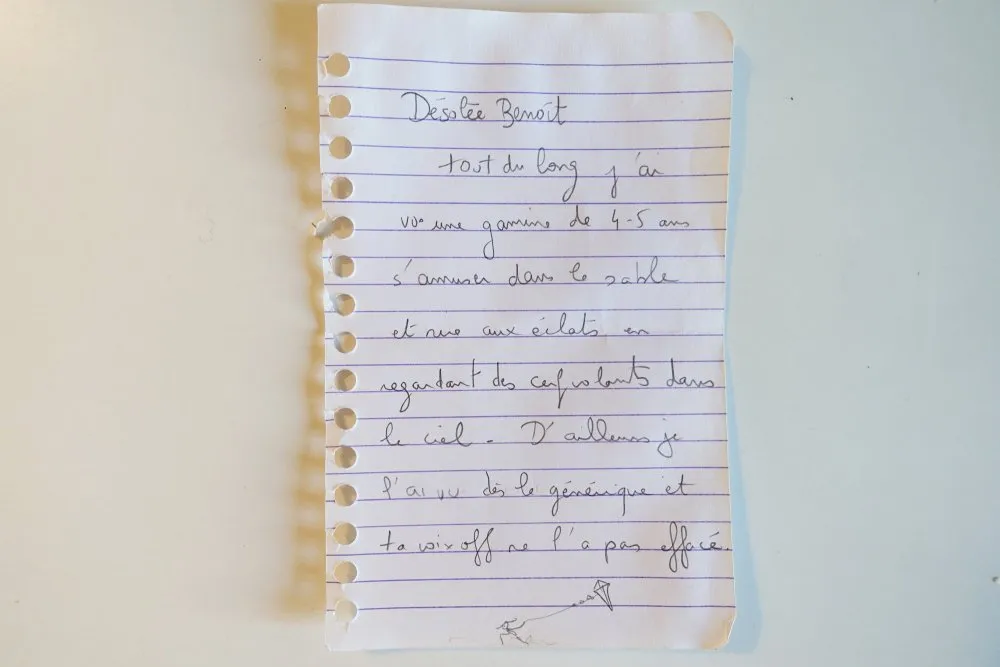 Désolée Benoît
tout du long j'ai
vu une gamine de 4-5 ans
s'amuser dans le sable
et rire aux éclats en
regardant des cerf volants dans
le ciel - D'ailleurs je
l'ai vu dès le générique et
ta voix off ne l'a pas effacé.